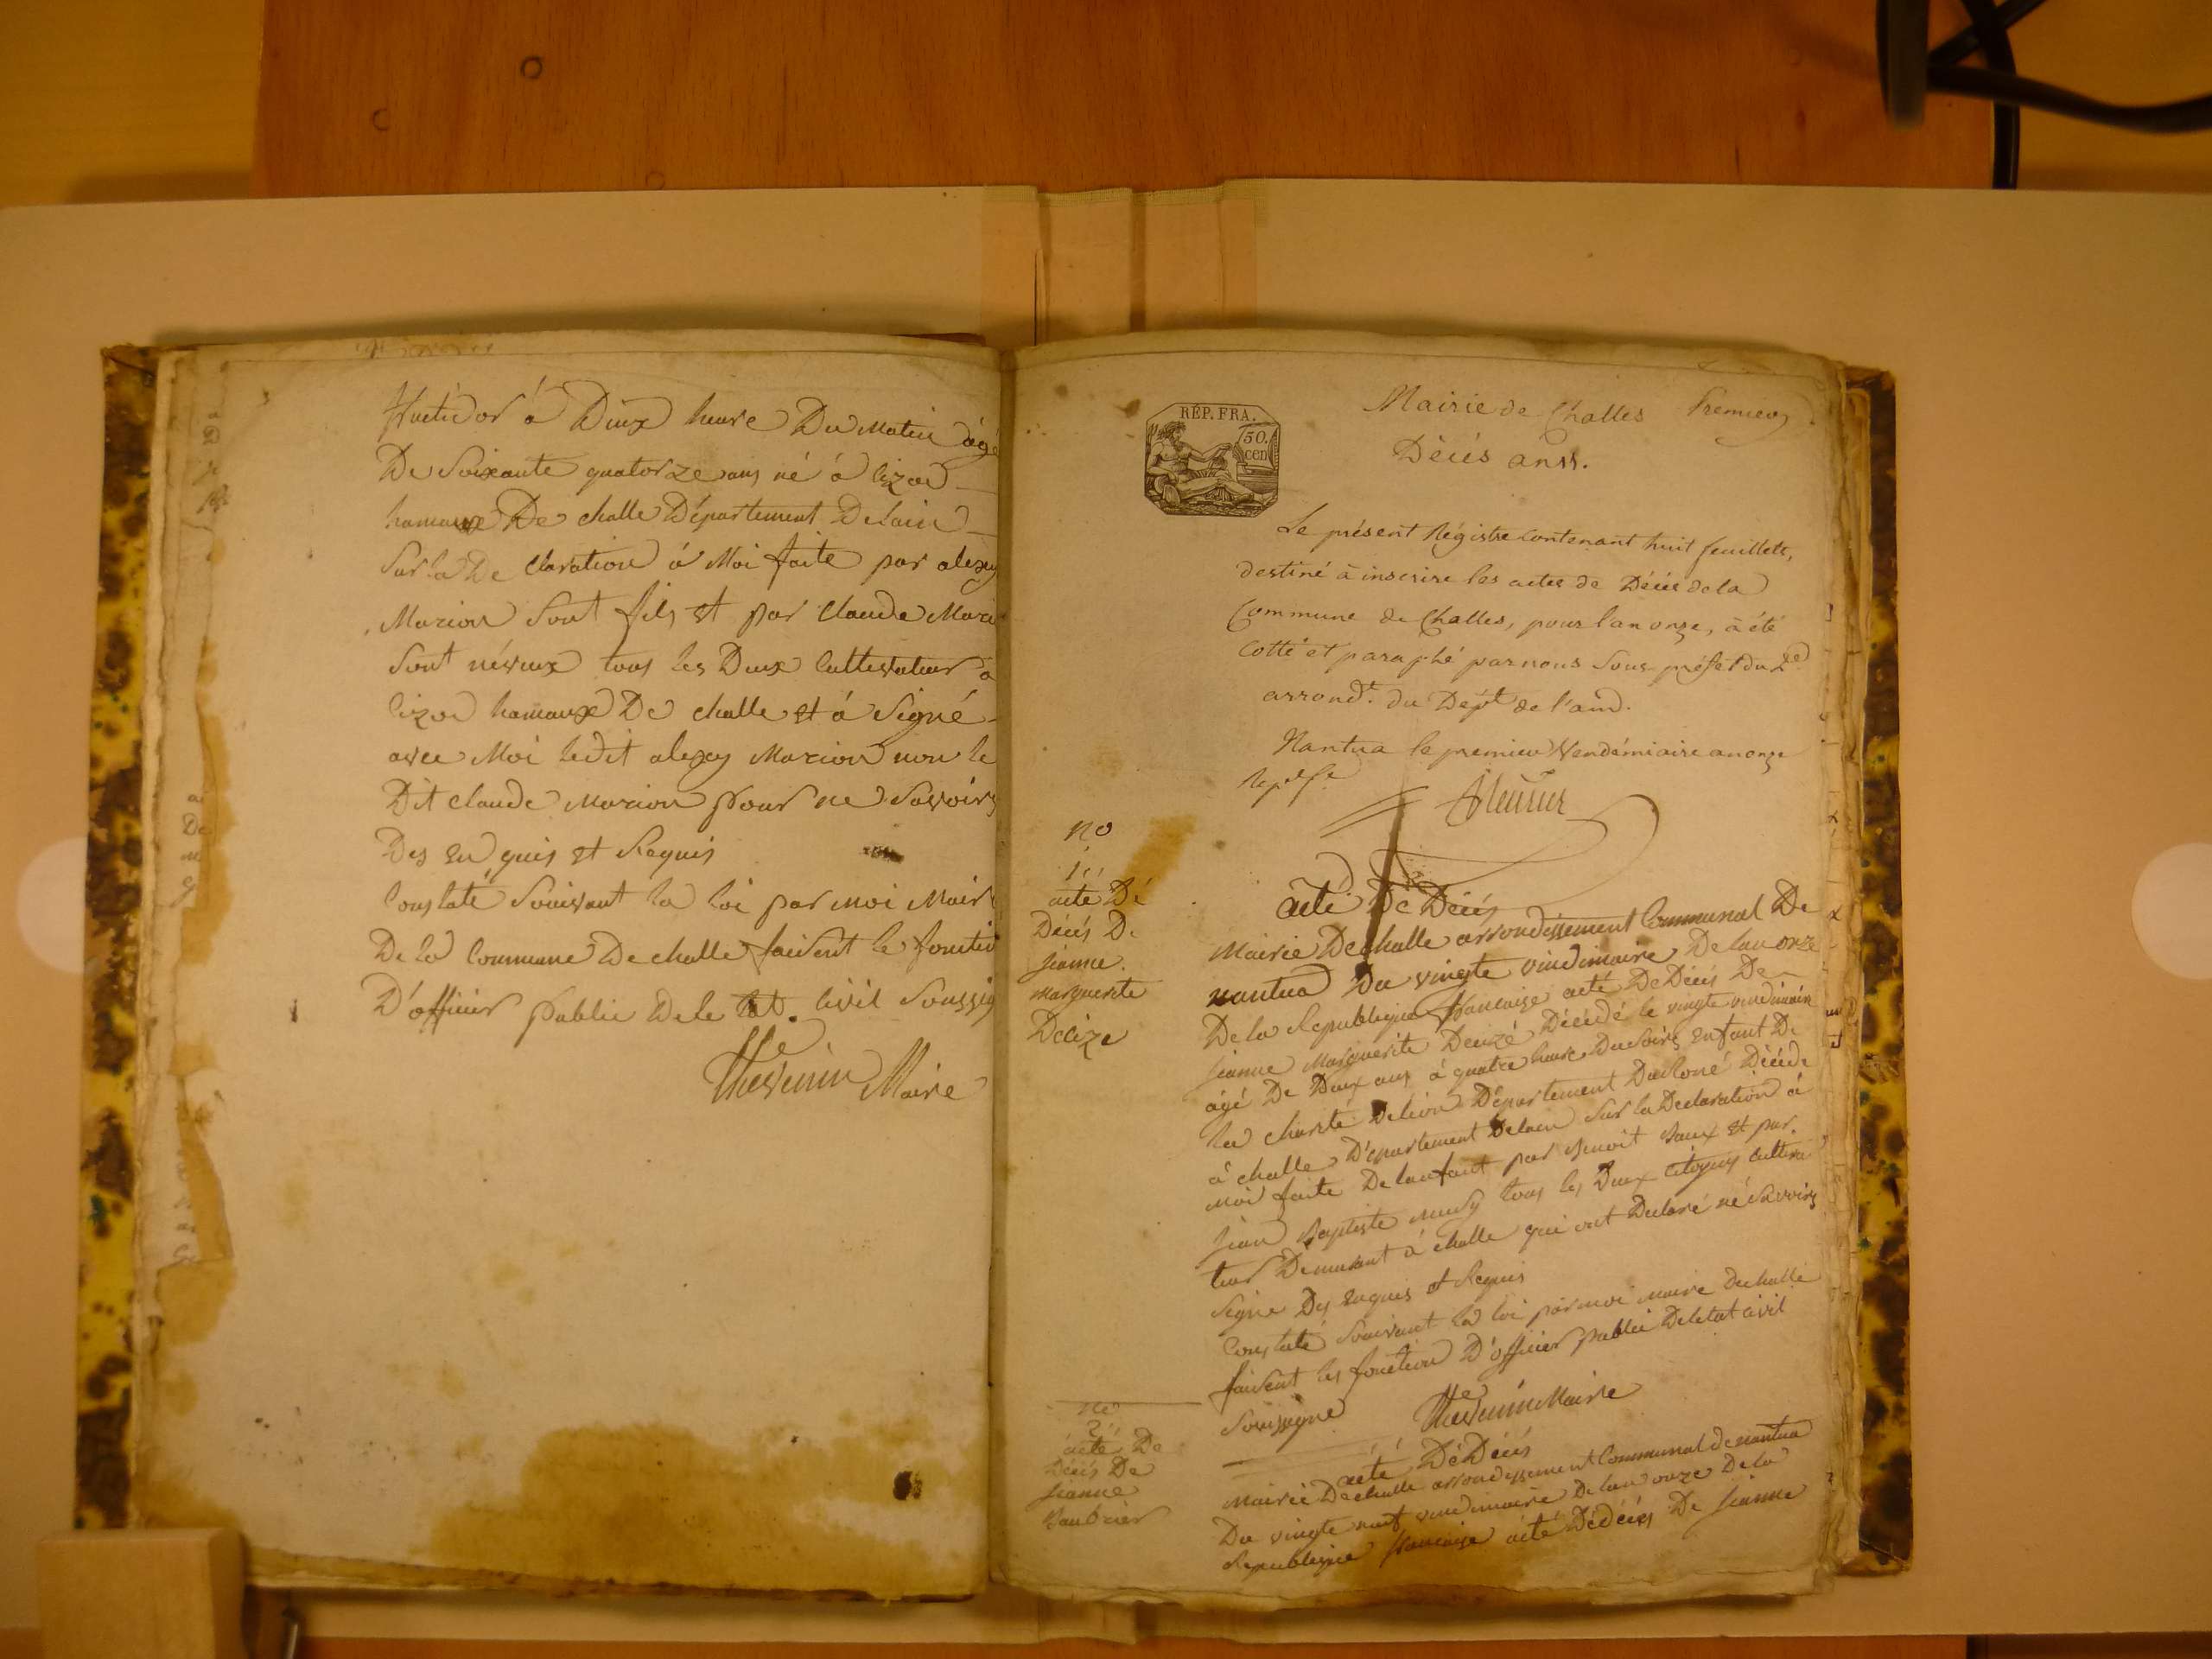 fructidor á Deux heure Du Matin âgé
De Soixante quatorze ans né á lizod
hamaux De challe Département Delain
Sur la De claration á Moi faite par alexy
Marion Sont fils et par Claude Mari
Sont néveux tous les Deux Cultivateur a
lizod hamaux De challe et á Signé
avec Moi ledit alexy Marion non le
Dit claude Marion pour ne Savoirs
Des En quis et Requis
Constaté Souivant la loi par moi Mair
De la Commune De challe faisent le fonctio
D'officier public De le tat. Civil Soussig
Thevenin Maire
RÉP. FRA.
50.
cen
Mairie de Challes Premier
Décès an 11.
Le présent Régistre Contenant huit feuillets,
destiné à inscrire les actes de Décès de la
Commune de Challes, pour l'an onze, à été
Cotté et paraphé par nous Sous-préfet du 2e
arrondt. du Dept de l'ain.
Nantua le premier Vendémiaire an onze
no
1
acté Dé
Décés De
jeanne
Marguerite
acté De Décés
Mairie De challe arrondissement Communal De
nantua Du vingte vindimaire De lan onze
De la Republique francaise acté De Décés De
jeanne Marguerite Décédé le vingte vindimair
agé De Deux ans á quatre heure Du Soirs Enfant De
la charité De lion Département Du Roné Décéde
á challe Département De lain Sur la Declaration á
moi faite De lanfant par Benoit et par
jean Baptiste tous les Deux Citoyens Cultiva
teur Demurant á challe qui ont Declaré né Savoirs
Signe Des Enquis et Requis
Constaté Souivant la loi par moi maire De challe
faisent les fonction D'officier public De letat civil
Soussigne Thevenin Maire
no
2
acté De
Décés De
jeanne
acté De Décés
Mairie De challe arrondissement Communal de nantua
Du vingte neuf vindimaire De lan onze De la
Republique francaise acté De Décés De jeanne